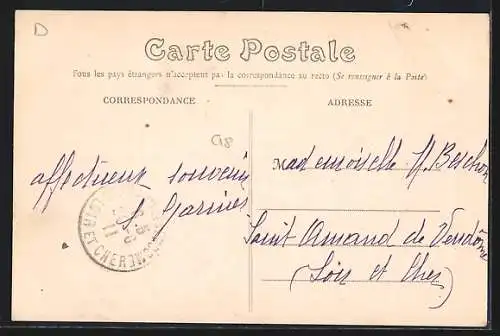 D
Carte Postale
Tous les pays étrangers n'acceptent pas la correspondance au recto (Se renseigner à la Poste)
CORRESPONDANCE
ADRESSE
C18
affectueux souvenir
S. Garnier
LOIR ET CHER
Mademoiselle H. Beschon
Saint Amand de Vendôme
(Loir et Cher)